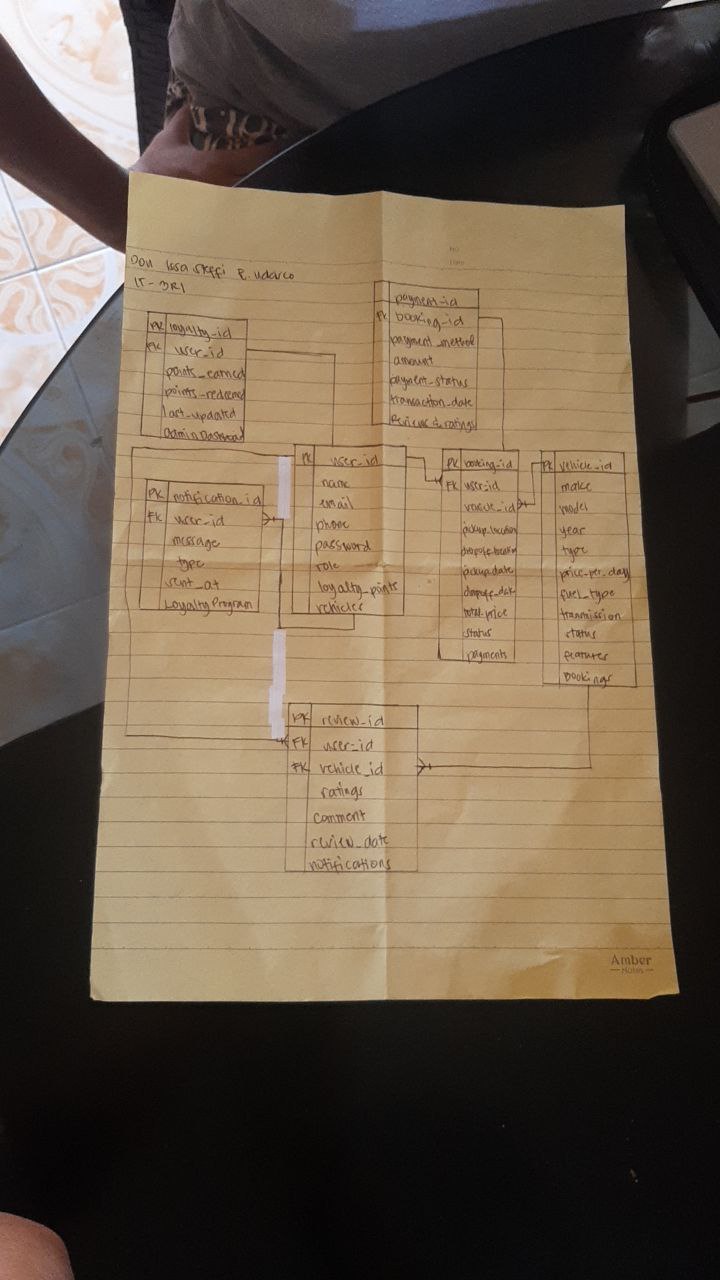 Don Issa Skeffi E. Udarco
IT-3R1
PK loyalty_id
FK user_id
points_earned
points_redeemed
last_updated
Admin Dashboad
payment_id
PK booking_id
payment_method
amount
payment_status
transaction_date
Reviews & ratings
PK notification_id
FK user_id
message
type
sent_at
Loyalty Program
PK user_id
name
email
phone
password
role
loyalty_points
vehicles
PK booking_id
FK user_id
vehicle_id
pickup_location
dropoff_location
pickup_date
dropoff_date
total_price
status
payments
PK vehicle_id
make
model
year
type
price_per_day
fuel_type
transmission
status
features
bookings
PK review_id
FK user_id
FK vehicle_id
ratings
comment
review_date
notifications
Amber
NOTES